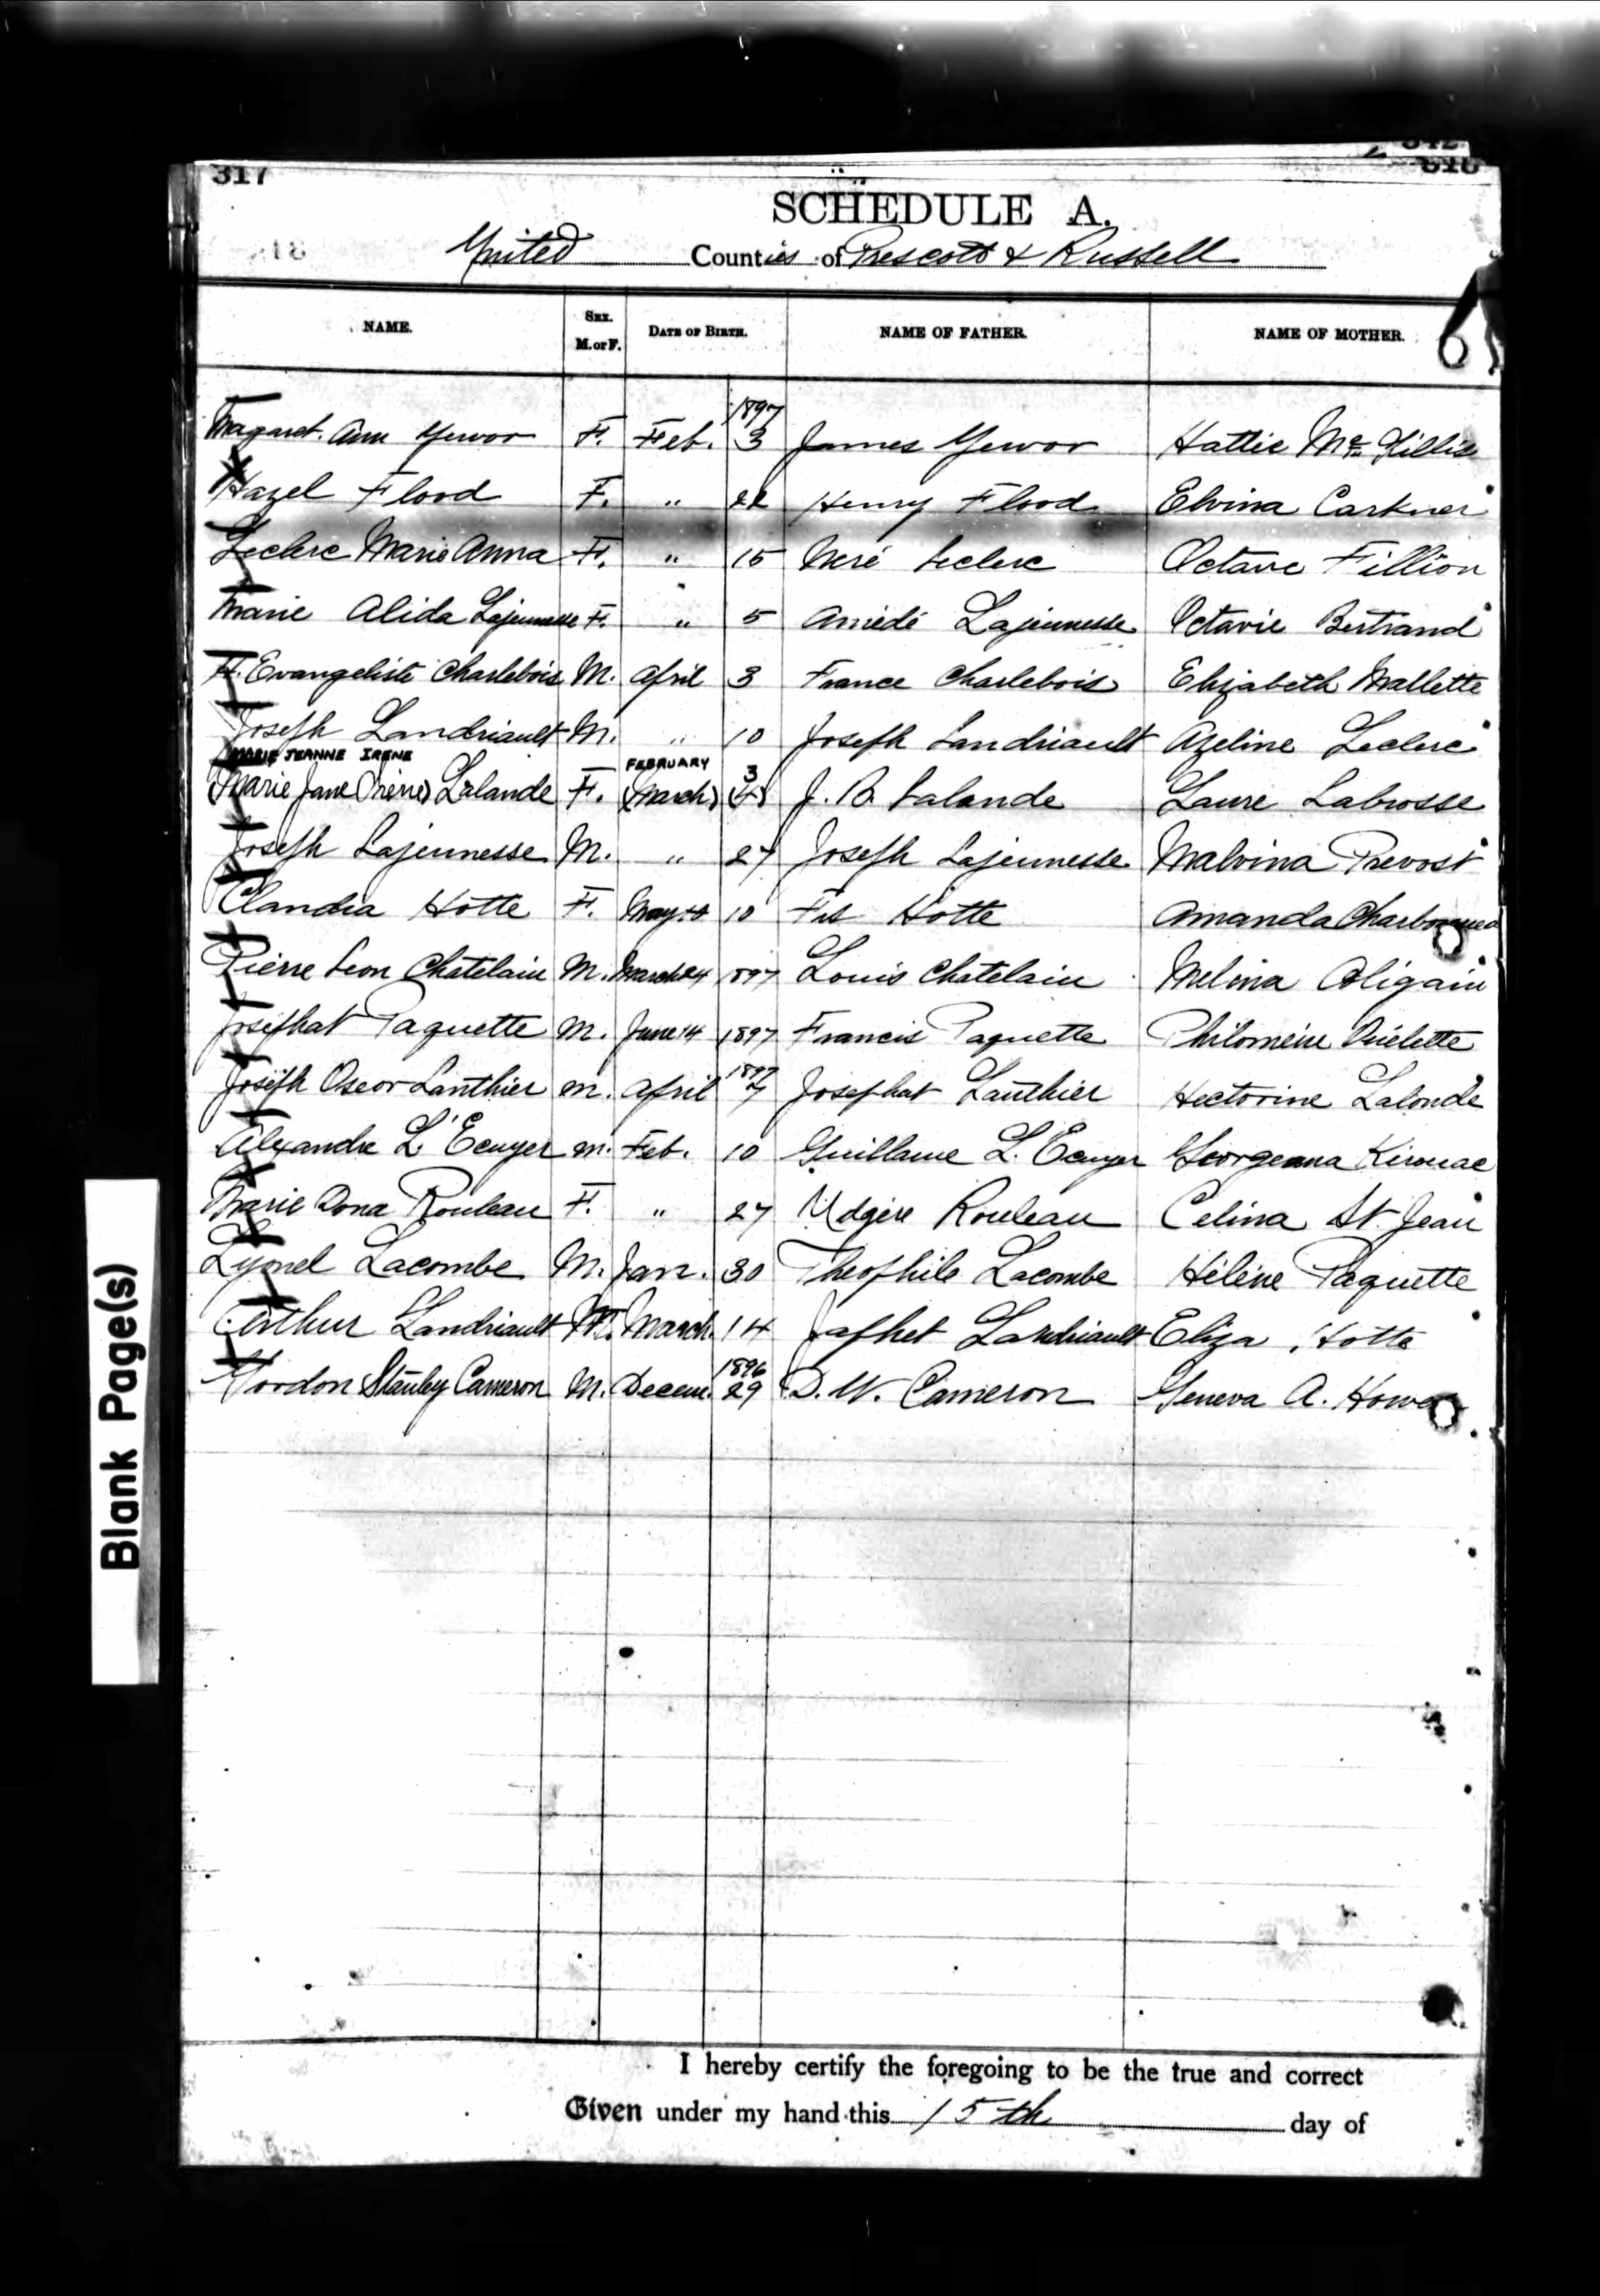 317
SCHEDULE A.
United Counties of Prescott & Russell
NAME. SEX. M. or F. DATE OF BIRTH. NAME OF FATHER. NAME OF MOTHER.
1897
Magaret Ann Yewor F. Feb. 3 James Yewor Hattie Mc Gillis
Hazel Flood F. " 22 Henry Flood Elvina Carkner
Leclerc Marie Anna F. " 15 Neré Leclerc Octavie Fillion
Marie Alida Lajeunesse F. " 5 Amédé Lajeunesse Octavie Bertrand
Evangeliste Charlebois M. April 3 France Charlebois Elizabeth Mallette
Joseph Landriault M. " 10 Joseph Landriault Azeline Leclerc
MARIE JEANNE IRENE FEBRUARY 3
(Marie Jane Irène) Lalande F. (March) (4) J. B. Lalande Laure Labrosse
Joseph Lajeunesse M. " 27 Joseph Lajeunesse Malvina Prevost
Claudia Hotte F. May 10 Frs Hotte Amanda
Pierre Leon Chatelain M. March 24 1897 Louis Chatelain Melina
Josephat Paquette M. June 14 1897 Francis Paquette
1897
Joseph Oscor Lanthier M. April 7 Josephat Lanthier Hectorine Lalonde
Alexandre L'Ecuyer M. Feb. 10 Guillaume L'Ecuyer Georgeanna Kirouac
Marie Dona Rouleau F. " 27 Udgère Rouleau Celina St. Jean
Lyonel Lacombe M. Jan. 30 Theophile Lacombe Hélène Paquette
Arthur Landriault M. March 14 Japhet Landriault Eliza Hotte
1896
Gordon Stanley Cameron M. Decem. 29 D. W. Cameron Geneva A.
Blank Page(s)
I hereby certify the foregoing to be the true and correct
Given under my hand this 15th day of